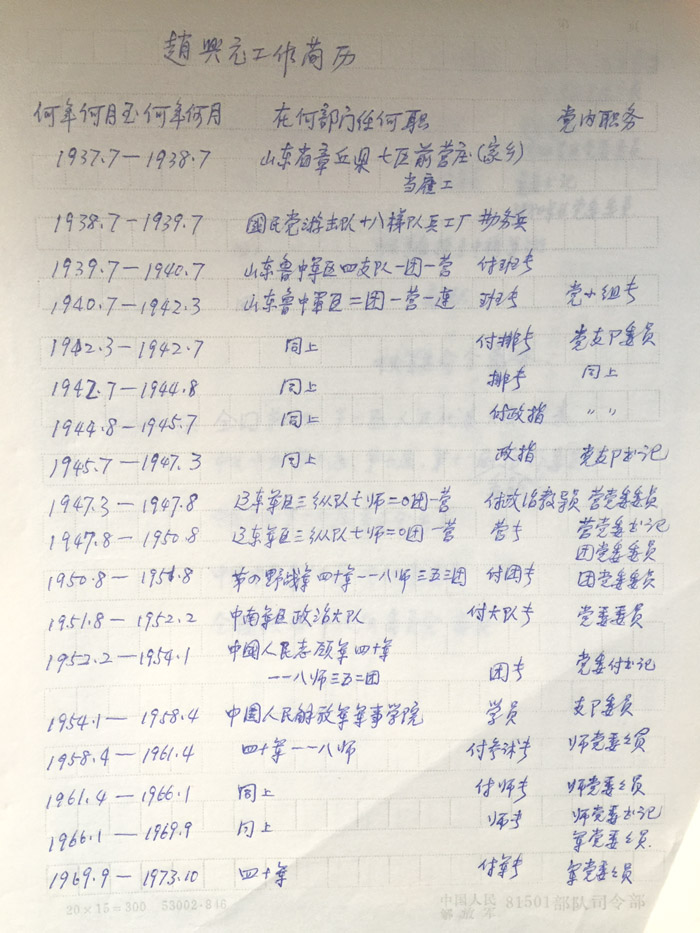 趙興元工作简历
何年何月至何年何月 在何部门任何职 党内职务
1937.7—1938.7 山东省章丘县七区前营庄(家乡)
当雇工
1938.7—1939.7 國民党游击队十八梯队兵工厂 勤务兵
1939.7—1940.7 山东鲁中军区四支队一团一营 付班长
1940.7—1942.3 山东鲁中军区二团一营一连 班长 党小组长
1942.3—1942.7 同上 付排长 党支卩委员
1942.7—1944.8 同上 排长 同上
1944.8—1945.7 同上 付政指 〃〃
1945.7—1947.3 同上 政指 党支卩书记
1947.3—1947.8 辽东军区三纵队七师二0团一营 付政治教导员 营党委委员
1947.8—1950.8 辽东军区三纵队七师二0团一营 营长 营党委书记
团党委委员
1950.8—1951.8 第四野战军四十军一一八师三五三团 付团长 团党委委员
1951.8—1952.2 中南军区政治大队 付大队长 党委委员
1952.2—1954.1 中國人民志愿军四十军
一一八师三五二团 团长 党委付书记
1954.1—1958.4 中國人民解放军军事学院 学员 支卩委员
1958.4—1961.4 四十军一一八师 付参谋长 师党委委员
1961.4—1966.1 同上 付师长 师党委委员
1966.1—1969.9 同上 师长 师党委书记
军党委委员
1969.9—1973.10 四十军 付军长 军党委委员
20×15=300 53002·846 中国人民解放军 81501部队司令部